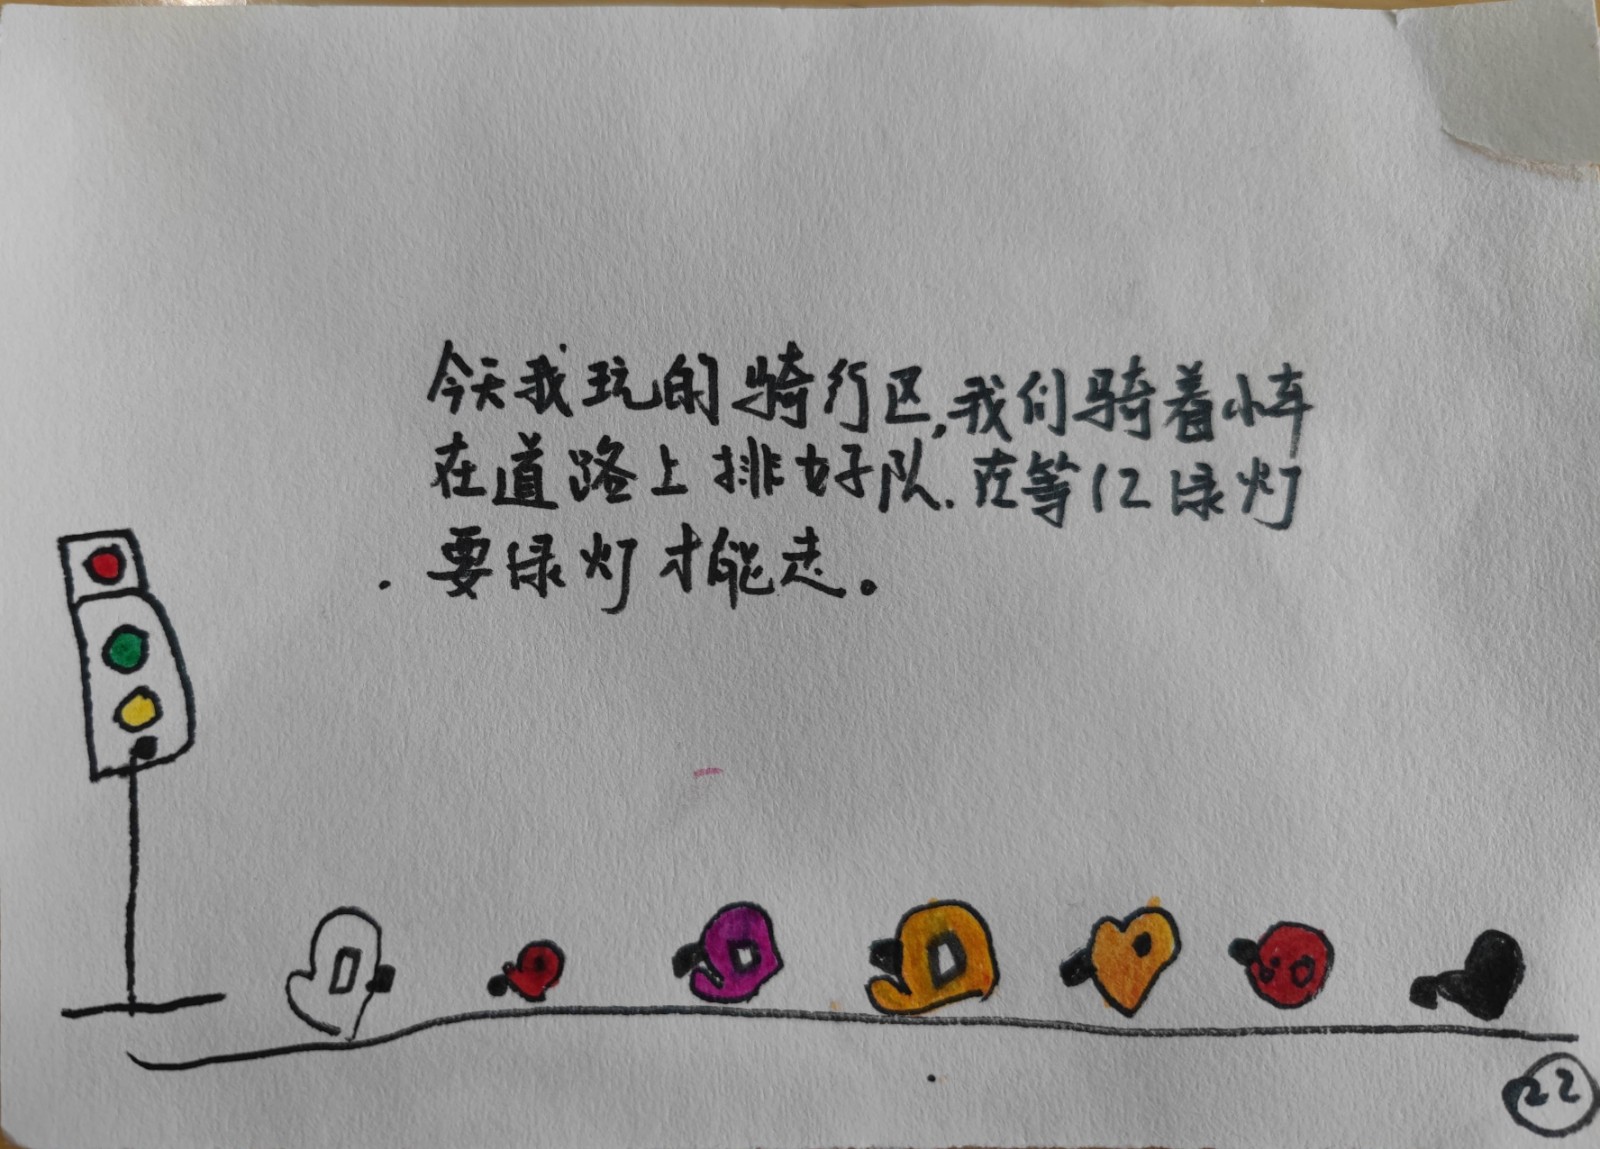 今天我玩的骑行区,我们骑着小车
在道路上排好队.在等红绿灯
.要绿灯才能走。
22